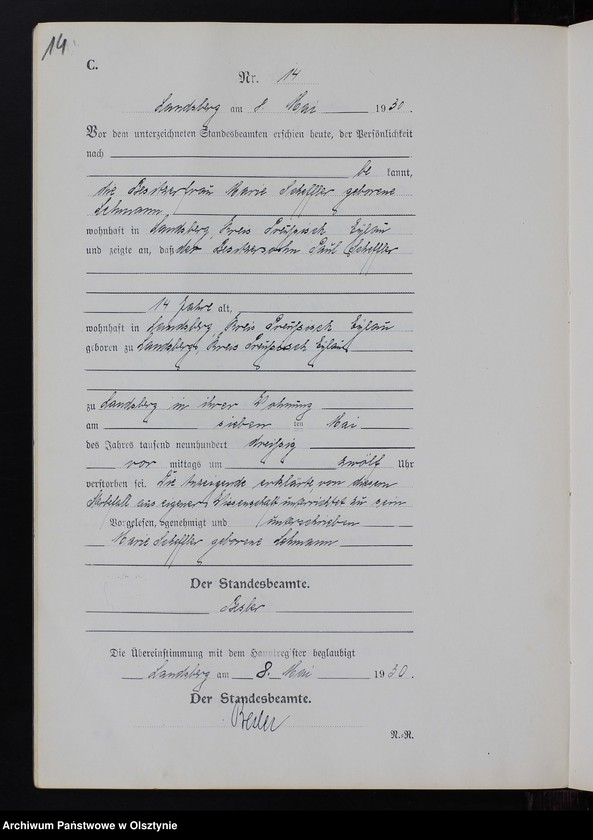 14
C.
Nr. 14
Landsberg am 8. Mai 1930.
Vor dem unterzeichneten Standesbeamten erschien heute, der Persönlichkeit
nach
be kannt,
die Besitzerfrau Marie Scheffler geborene
Lehmann,
wohnhaft in Landsberg, Kreis Preußisch Eylau
und zeigte an, daß der Besitzersohn Paul Scheffler
14 Jahre alt,
wohnhaft in Landsberg, Kreis Preußisch Eylau
geboren zu Landsberg, Kreis Preußisch Eylau
zu Landsberg in ihrer Wohnung
am sieben ten Mai
des Jahres tausend neunhundert dreißig
vor mittags um zwölf Uhr
verstorben sei. Die Anzeigende erklärte von diesem
Sterbefall aus eigener Wissenschaft unterrichtet zu sein
Vorgelesen, genehmigt und unterschrieben
Marie Scheffler geborene Lehmann
Der Standesbeamte.
Besler
Die Übereinstimmung mit dem Hauptregister beglaubigt
Landsberg am 8. Mai 1930.
Der Standesbeamte.
Besler
N.-R.
Archiwum Państwowe w Olsztynie